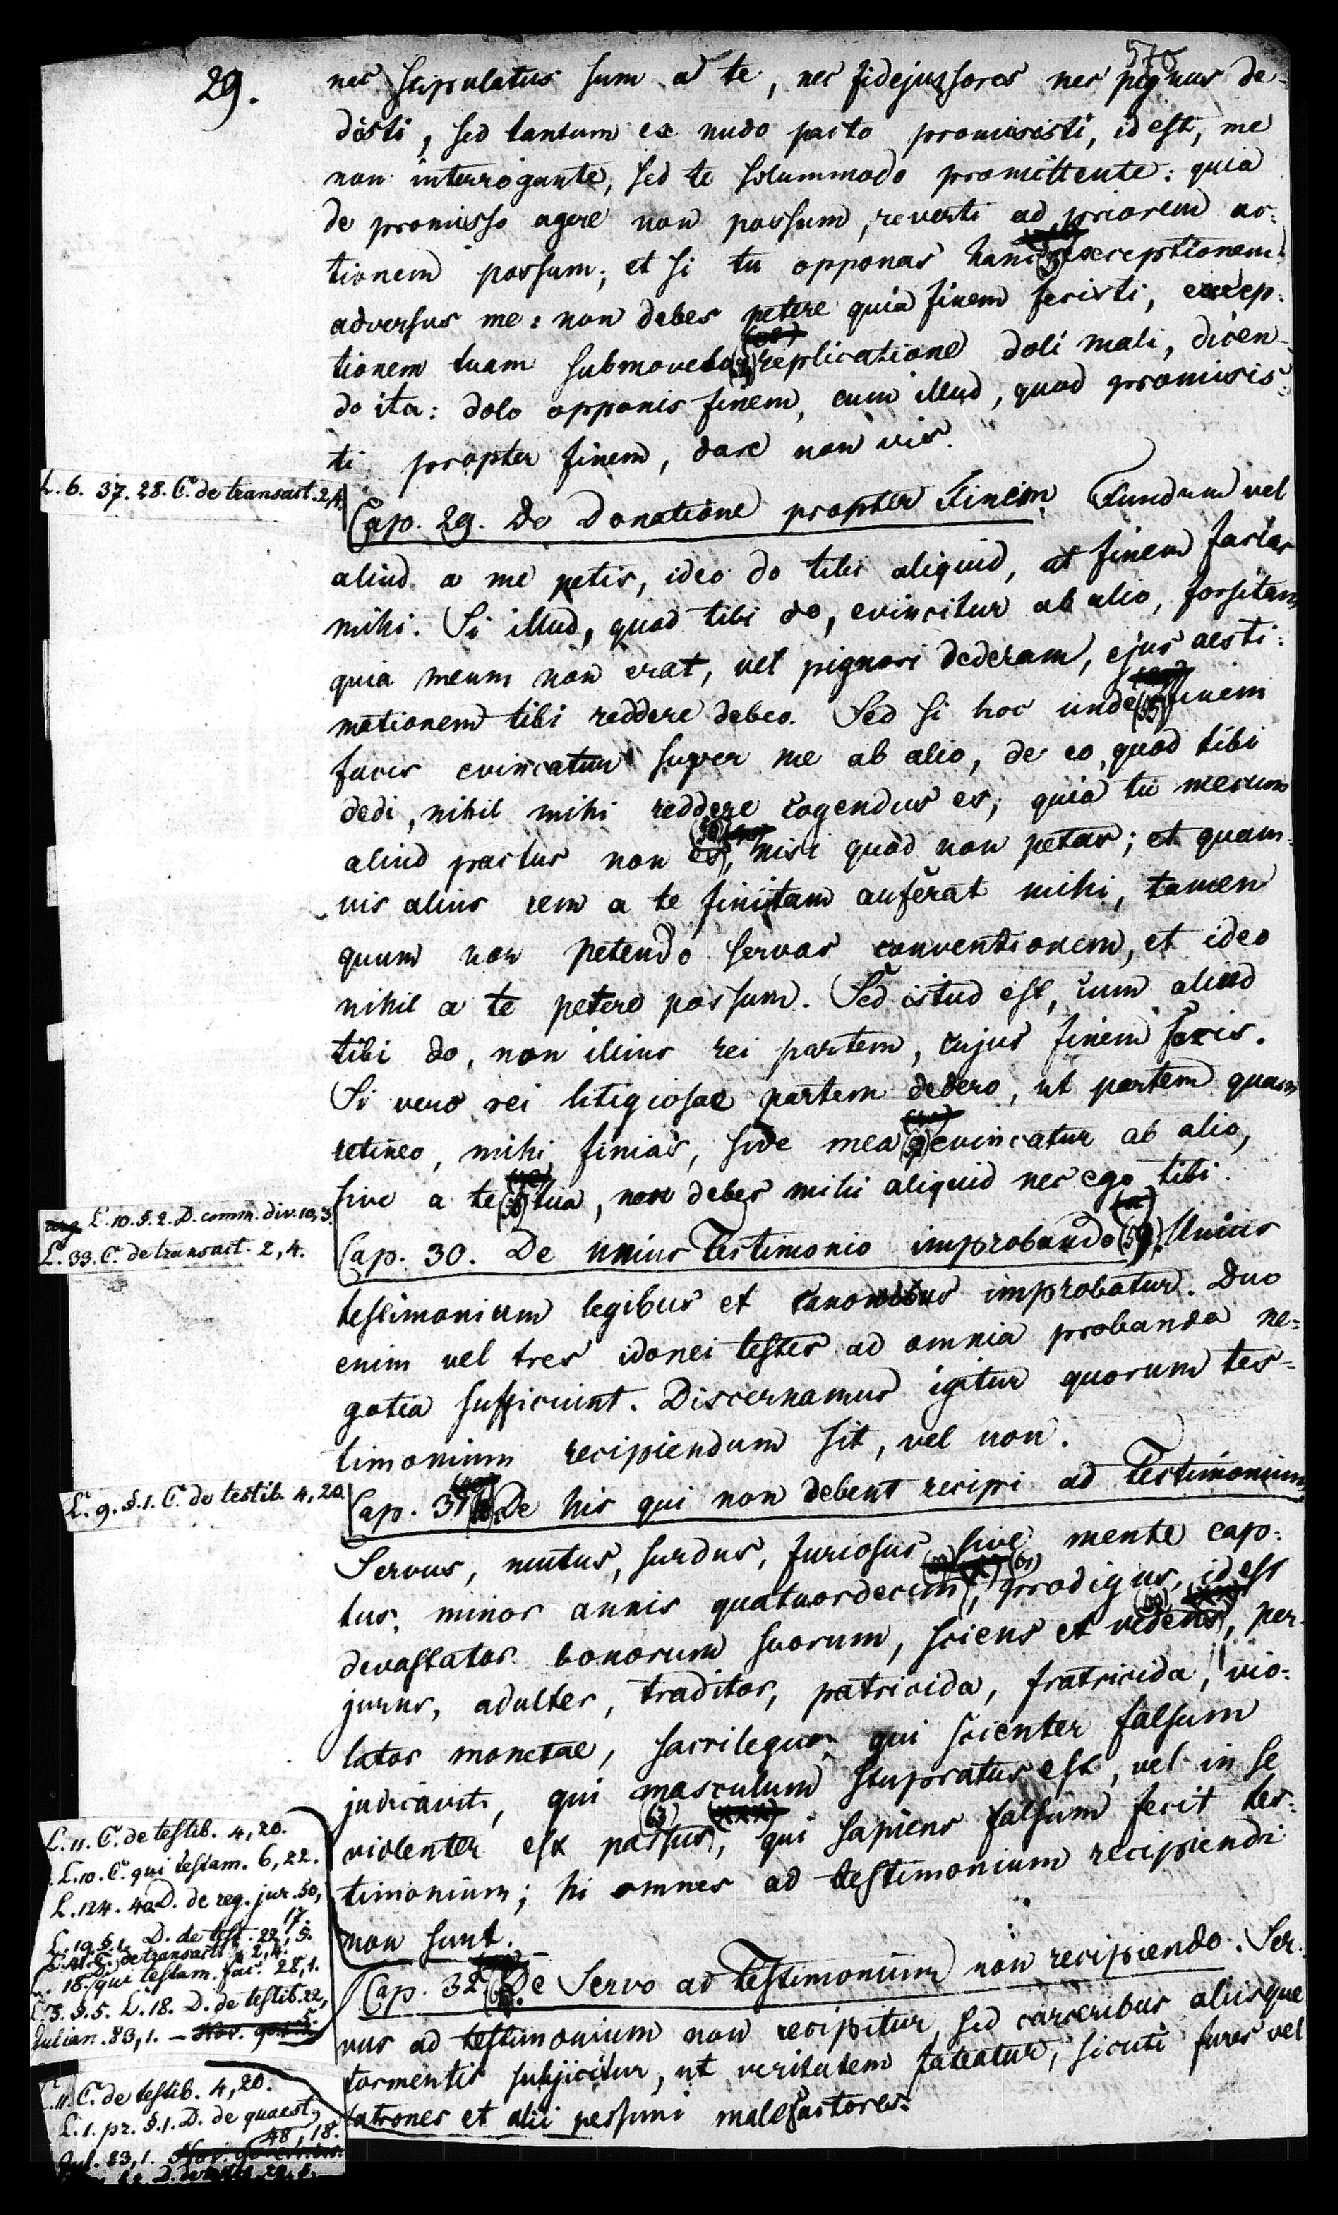 29.
nec stipulatus sum a te, nec fidejussores nec pignus de-
disti, sed tantum ex nudo pacto promisisti, id est, me
non interrogante, sed te solummodo promittente: quia
de promisso agere non possum, reverti ad priorem ac-
tionem possum; et si tu opponas hanc exceptionem
adversus me: non debes petere quia finem fecisti, excep-
tionem tuam submovebo replicatione doli mali, dicen-
do ita: dolo opponis finem, cum illud, quod promisis-
ti propter finem, dare non vis.
L. 6. 37. 28. C. de transact. 2,4.
Cap. 29. De Donatione propter Finem. Fundum vel
aliud a me petis, ideo do tibi aliquid, ut finem facias
mihi. Si illud, quod tibi do, evincitur ab alio, forsitan
quia meum non erat, vel pignori dederam, ejus aesti-
mationem tibi reddere debeo. Sed si hoc unde (55) finem
facis evincatur super me ab alio, de eo, quod tibi
dedi, nihil mihi reddere cogendus es, quia tu mecum
aliud pactus non es, (56) nisi quod non petas; et quam-
vis alius rem a te finitam auferat mihi, tamen
quum non petendo servas conventionem, et ideo
nihil a te petere possum. Sed istud est, cum aliud
tibi do, non illius rei partem, cujus finem facis.
Si vero rei litigiosae partem dedero, ut partem quam
retineo, mihi finias, sive mea evincatur ab alio,
sive a te (58) tua, non debes mihi aliquid nec ego tibi.
L. 10. §. 2. D. comm. div. 10,3.
L. 33. C. de transact. 2,4.
Cap. 30. De unius Testimonio improbando (59). Unius
testimonium legibus et canonibus improbatur. Duo
enim vel tres idonei testes ad omnia probanda ne-
gotia sufficiunt. Discernamus igitur quorum tes-
timonium recipiendum sit, vel non.
L. 9. §. 1. C. de testib. 4,20.
Cap. 31. De his qui non debent recipi ad Testimonium.
Servus, mutus, surdus, furiosus sive mente cap-
tus, minor annis quatuordecim, (61) prodigus, id est
devastator bonorum suorum, sciens et videns (62), per-
jurus, adulter, traditor, patricida, fratricida, vio-
lator monetae, sacrilegus, qui scienter falsum
judicavit, qui masculum stupratus est, vel in se
violenter est passus (63), qui sapiens falsum fecit tes-
timonium; hi omnes ad testimonium recipiendi
non sunt.
L. 11. C. de testib. 4,20.
L. 10. C. qui testam. 6,22.
L. 124. 40. D. de reg. jur. 50,
17.
L. 19. §. 1. D. de test. 22,5.
L. 41. C. de transact. 2,4.
L. 18. D. qui testam. fac. 28,1.
L. 3. §. 5. L. 18. D. de testib. 22,
5.
Julian. 83,1.
Cap. 32. De Servo ad Testimonium non recipiendo. Ser-
vus ad testimonium non recipitur, sed carceribus aliisque
tormentis subjicitur, ut veritatem fateatur, sicuti fures vel
latrones et alii pessimi malefactores.
L. 11. C. de testib. 4,20.
L. 1. pr. §. 1. D. de quaest.
48,18.
Jul. 83,1.